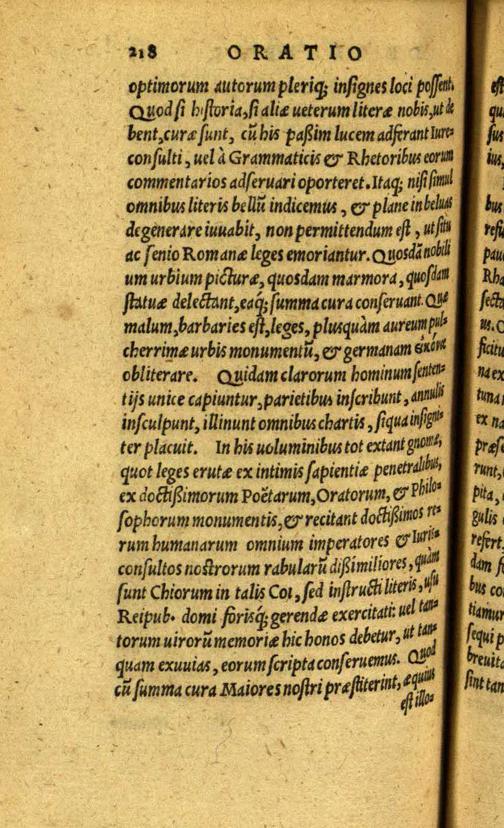 218 ORATIO
optimorum autorum pleriq; insignes loci possent.
Quod si historia, si aliæ ueterum literæ nobis, ut de
bent, curæ sunt, cũ his paßim lucem adferant Iure=
consulti, uel à Grammaticis & Rhetoribus eorum
commentarios adseruari oporteret. Itaq; nisi simul
omnibus literis bellũ indicemus, & plane in beluas
degenerare iuuabit, non permittendum est, ut situ
ac senio Romanæ leges emoriantur. Quosdã nobili
um urbium picturæ, quosdam marmora, quosdam
statuæ delectant, eaq; summa cura conseruant. Quæ
malum, barbaries est, leges, plusquàm aureum pul=
cherrimæ urbis monumentũ, & germanam εἰκόνα
obliterare. Quidam clarorum hominum senten=
tijs unice capiuntur, parietibus inscribunt, annulis
insculpunt, illinunt omnibus chartis, siqua insigni=
ter placuit. In his uoluminibus tot extant gnomæ,
quot leges erutæ ex intimis sapientiæ penetralibus,
ex doctißimorum Poëtarum, Oratorum, & Philo=
sophorum monumentis, & recitant doctißimos re=
rum humanarum omnium imperatores & Iuris=
consultos nostrorum rabularũ dißimiliores, quàm
sunt Chiorum in talis Coi, sed instructi literis, usu
Reipub. domi forisq; gerendæ exercitati: uel tan=
torum uirorũ memoriæ hic honos debetur, ut tan=
quam exuuias, eorum scripta conseruemus. Quod
cũ summa cura Maiores nostri præstiterint, æquius
est illo=
est
qu
sus
ius,
bus
refu
pau
Rha
secta
us. Q
ficitu
na ex
tuna
ex na
præs
runt,
pita,
gulis
refert,
dam
bus co
tiamur
sequi p
breuita
sint tan